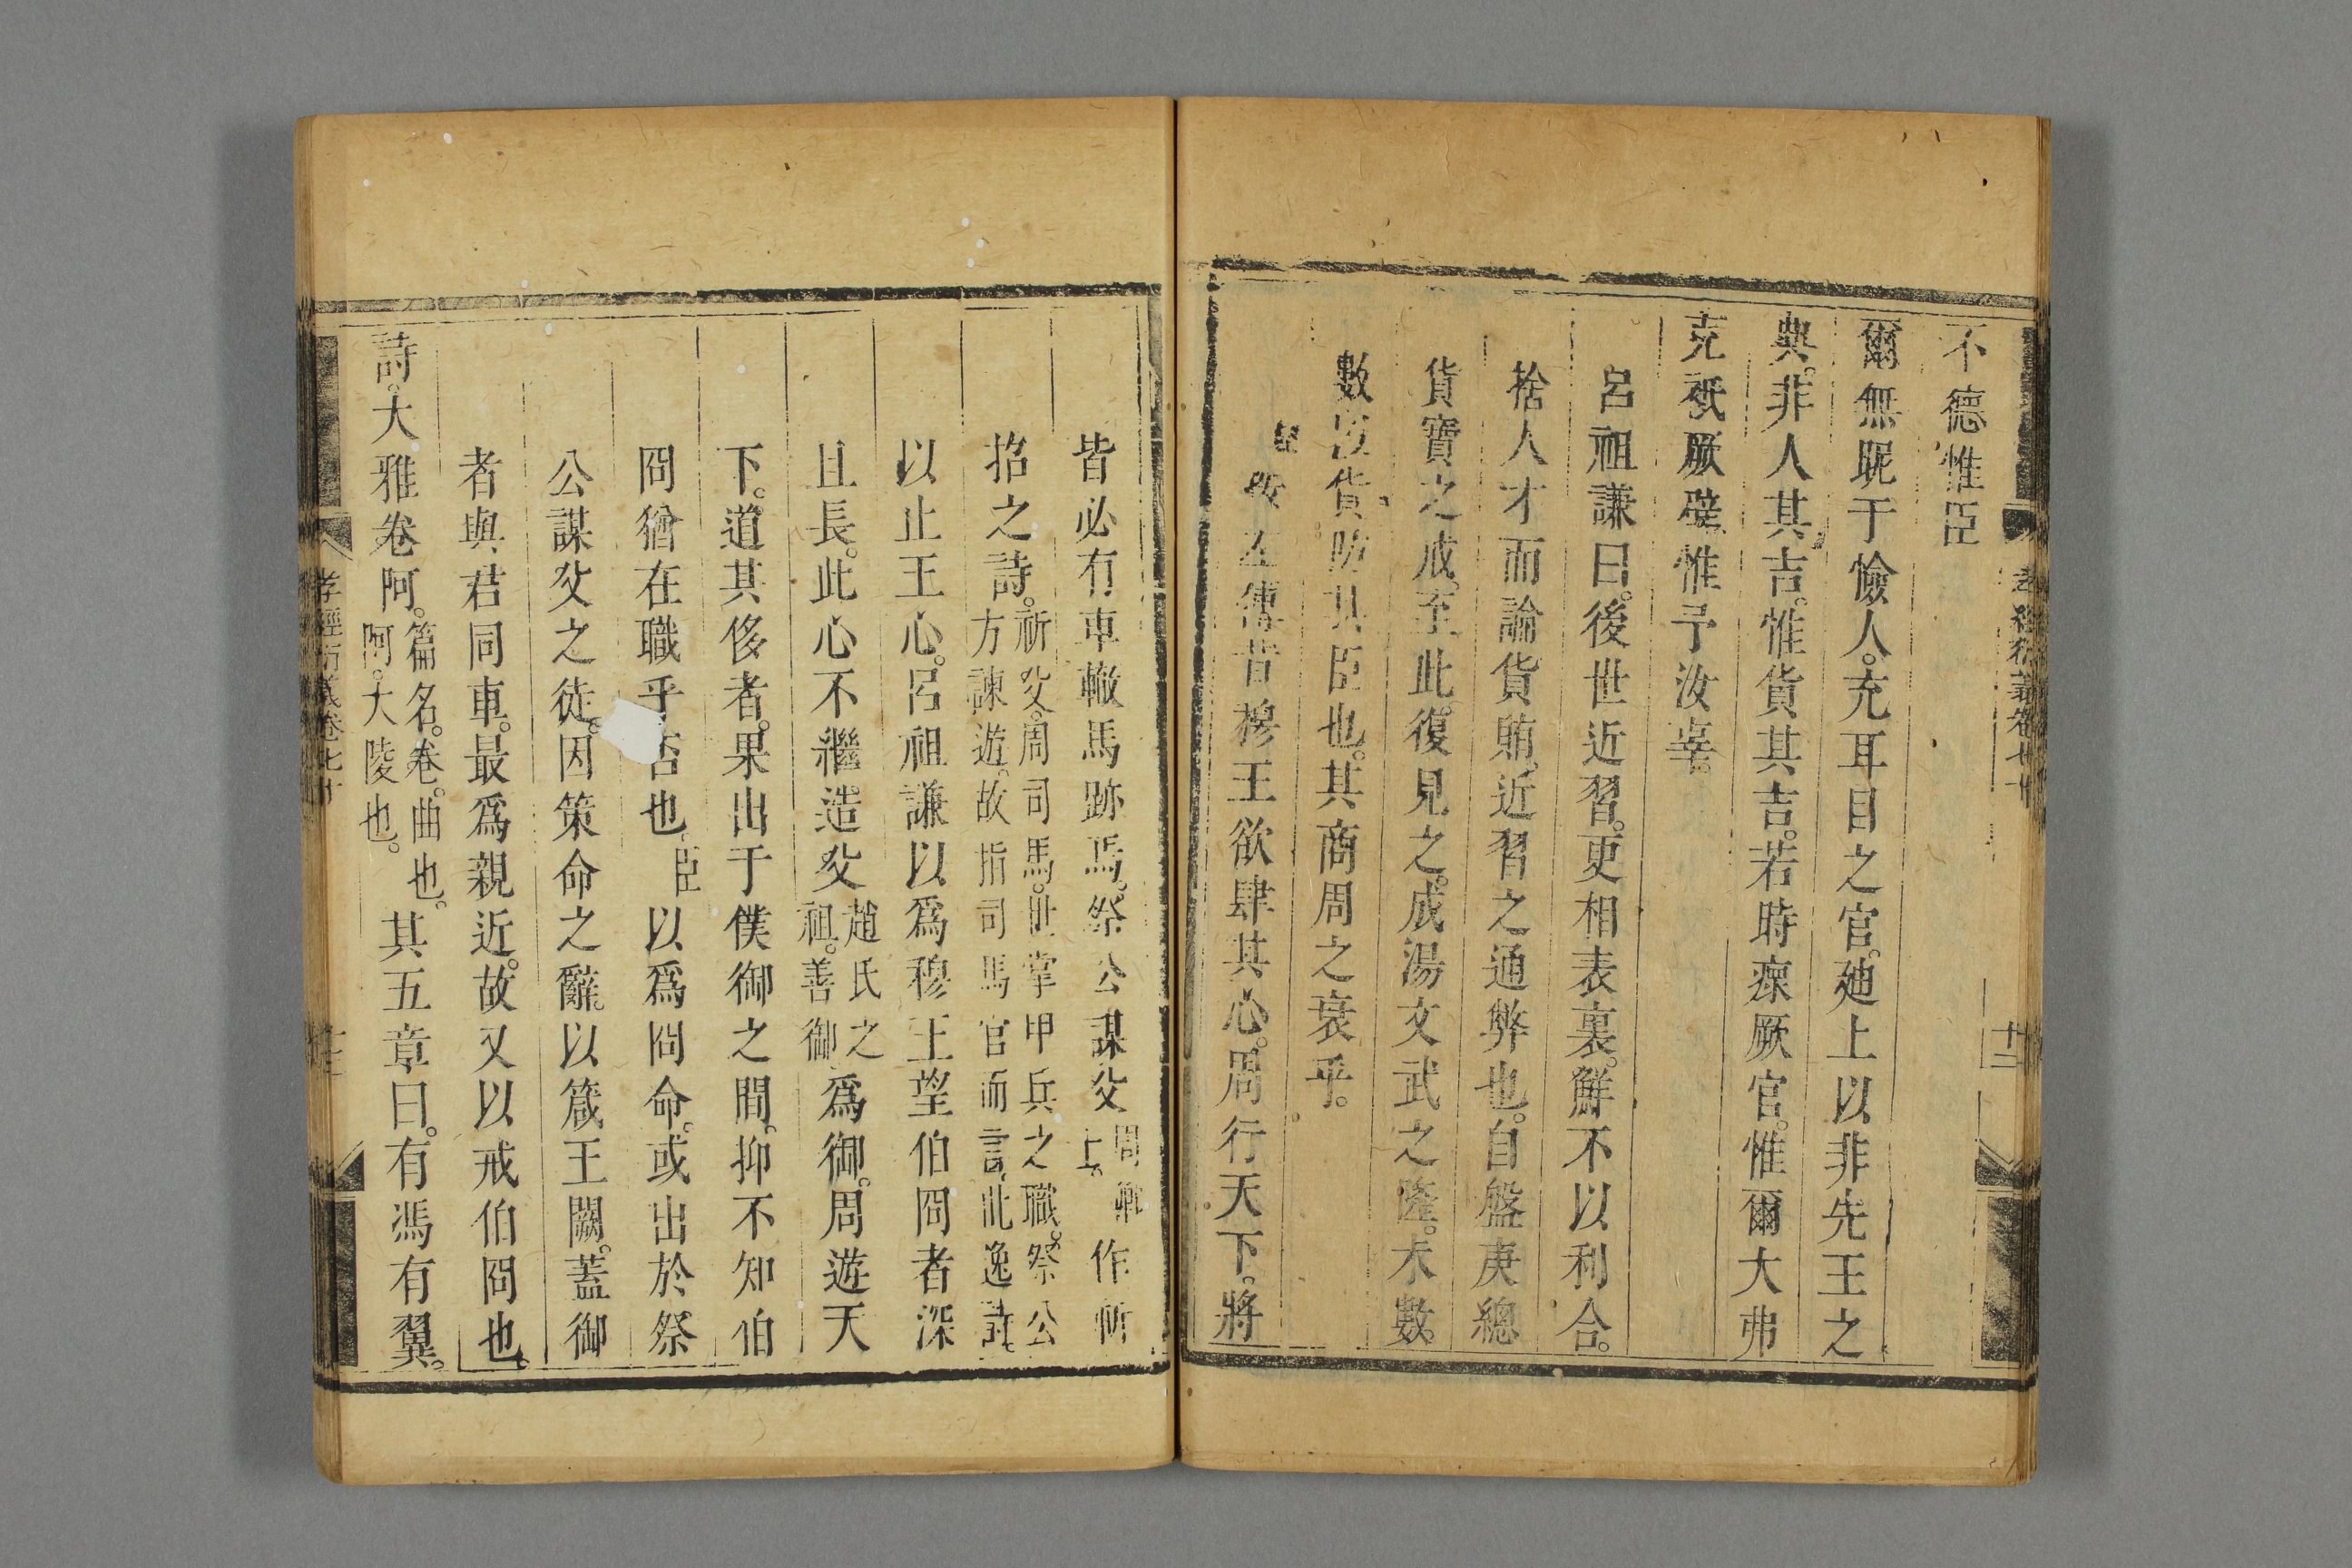 不德惟臣
爾無昵于憸人。充耳目之官。廸上以非先王之
典。非人其吉。惟貨其吉。若時瘝厥官。惟爾大弗
克祇厥辟。惟予汝辜。
呂祖謙曰。後世近習。更相表裏。鮮不以利合。
捨人才而論貨賄。近習之通弊也。自盤庚總
貨寶之戒。至此。復見之。成湯文武之隆。未數
數以貨防其臣也。其商周之衰乎。
臣按左傳昔穆王欲肆其心。周行天下。將
皆必有車轍馬跡焉。祭公謀父
周卿
士。
作祈
招之詩。
祈父。周司馬。世掌甲兵之職。祭公
方諫遊。故指司馬官而言。此逸詩。
以止王心。呂祖謙以爲穆王望伯冏者深
且長。此心不繼。造父
趙氏之
祖。善御
爲御。周遊天
下。道其侈者。果出于僕御之間。抑不知伯
冏猶在職乎否也。臣以爲冏命。或出於祭
公謀父之徒。因策命之辭。以箴王闕。蓋御
者與君同車。最爲親近。故又以戒伯冏也。
詩。大雅卷阿。
篇名。卷。曲也。
阿。大陵也。
其五章曰。有馮有翼。
孝經衍義卷七十
十二